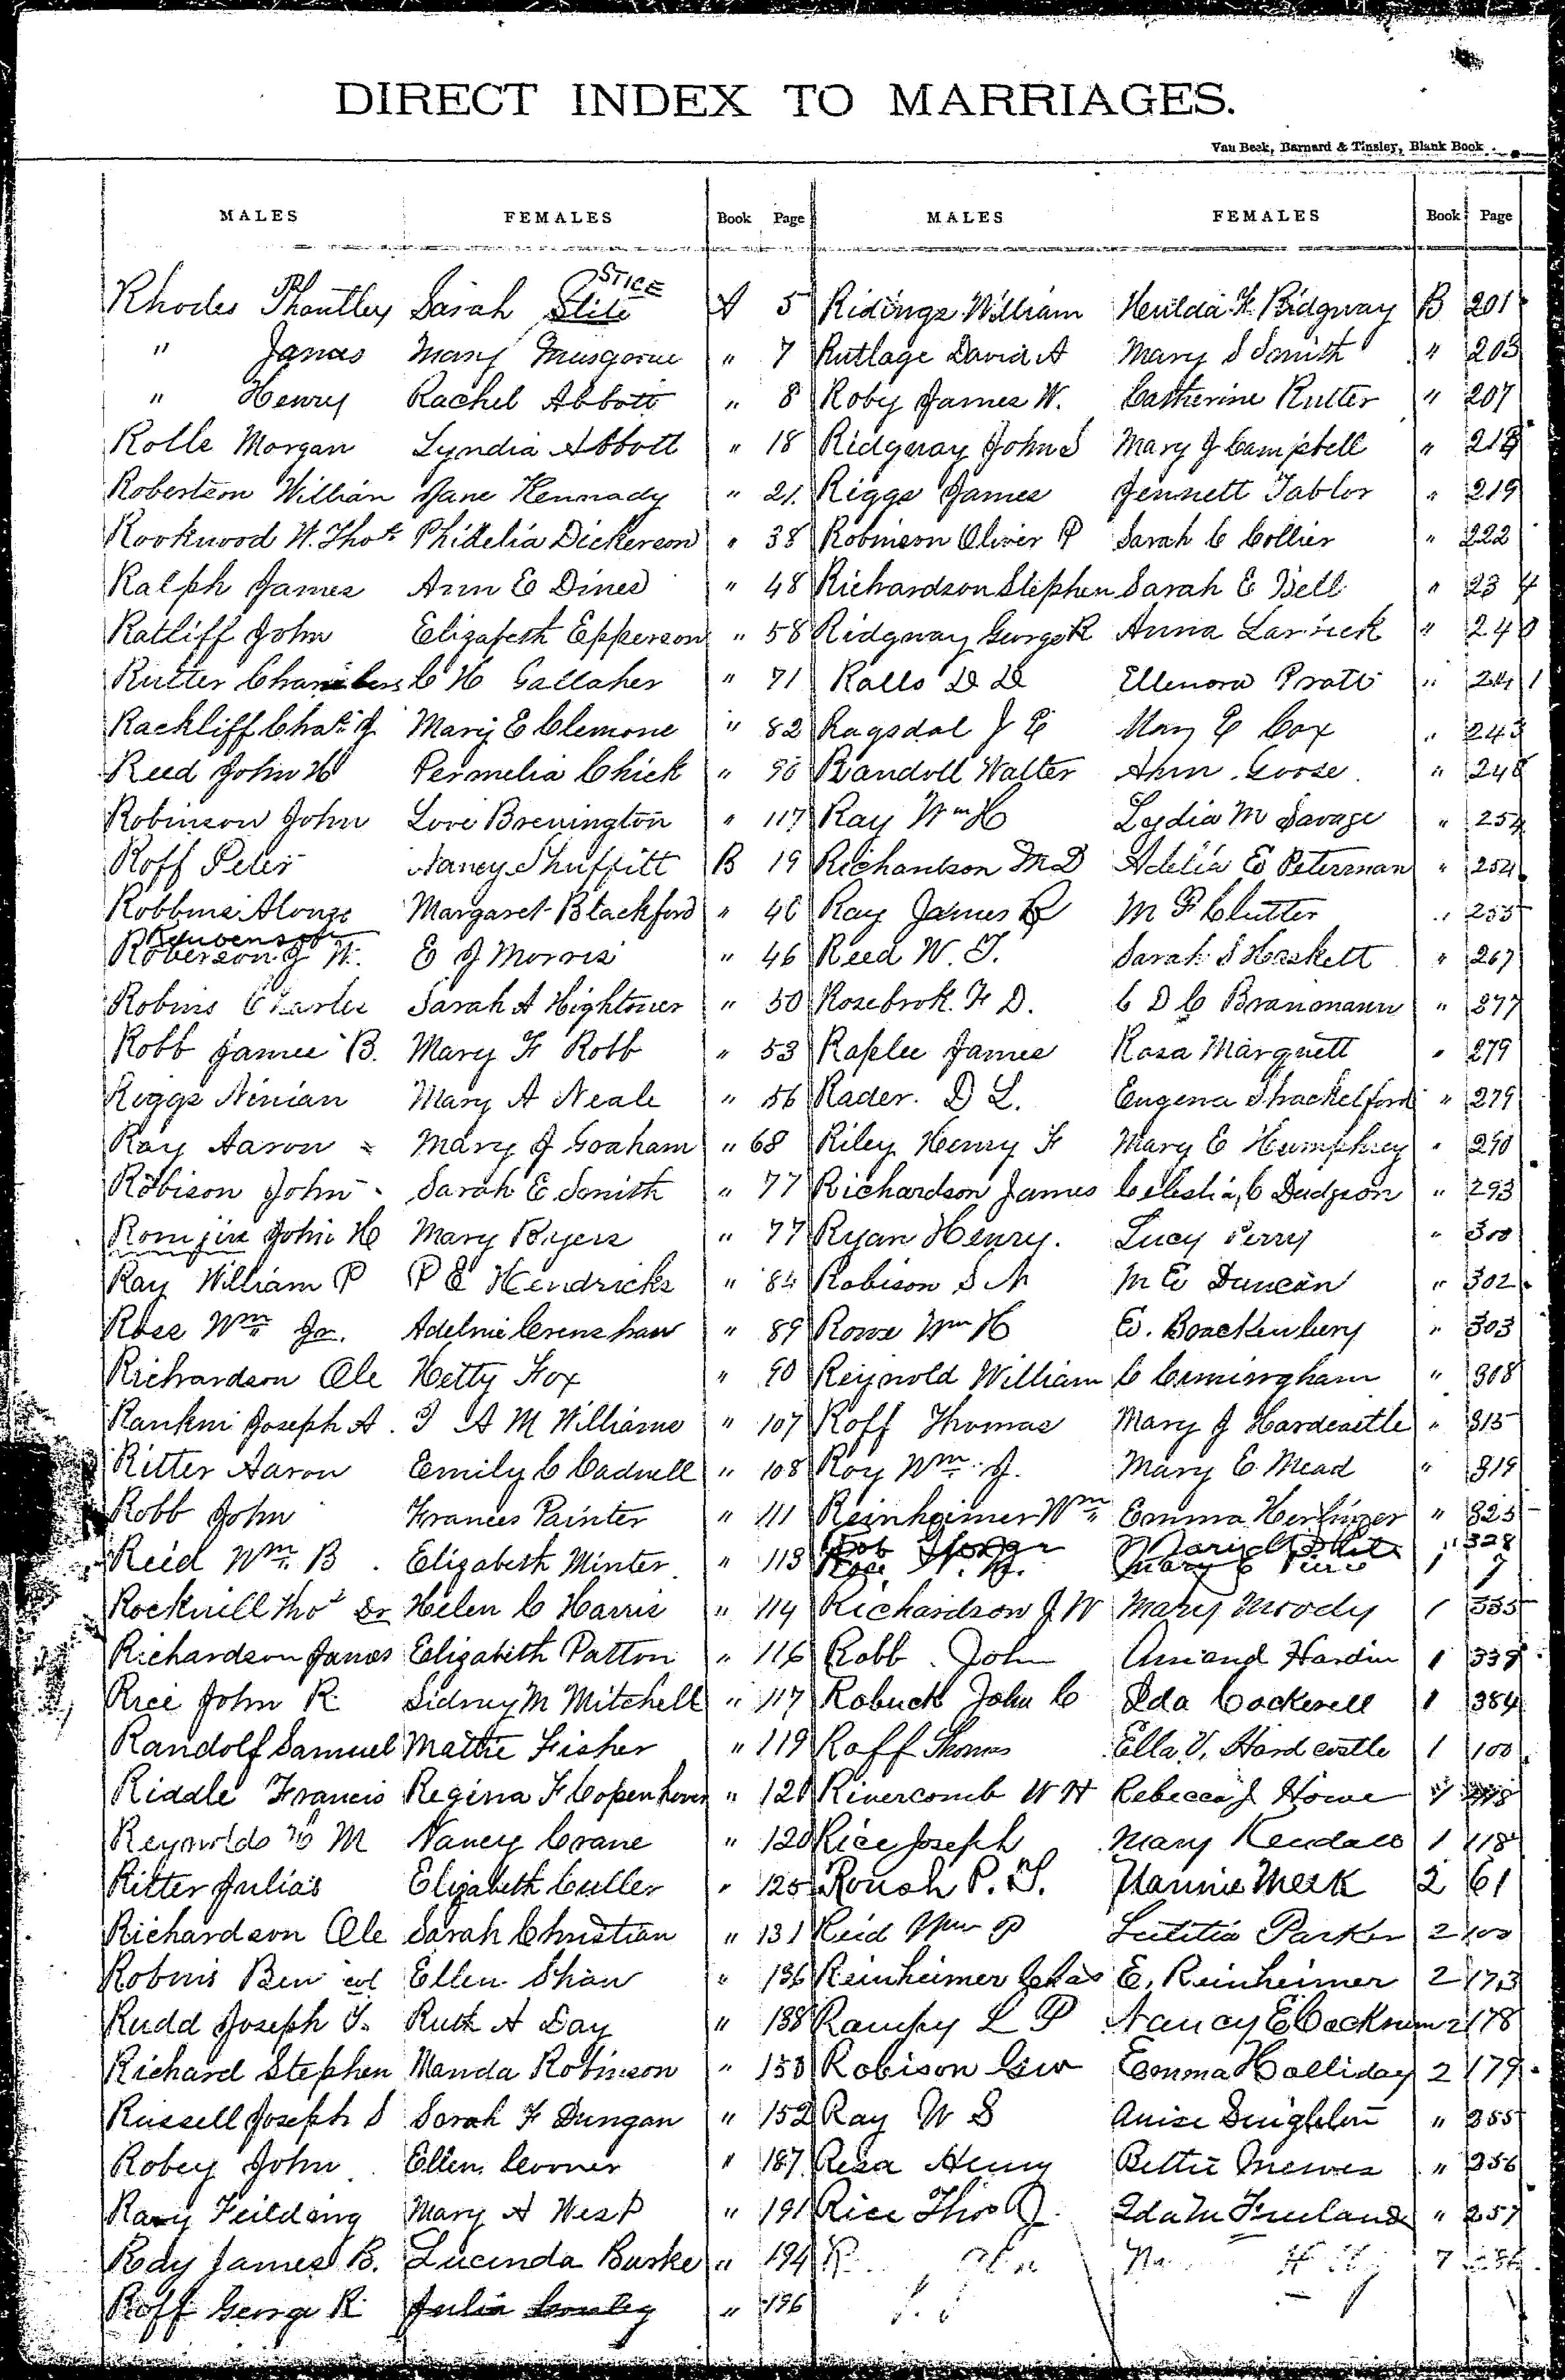 DIRECT INDEX TO MARRIAGES.
Van Beek, Barnard & Tinsley, Blank Book
MALES FEMALES Book Page MALES FEMALES Book Page
STICE
Rhodes Phantley Sarah Stile A 5 Ridings William Hulda F Ridgway B 201
" James Mary Musgorue " 7 Rutlage David A Mary S Smith " 203
" Henry Rachel Abbott " 8 Roby James W. Catherine Rutter " 207
Rolle Morgan Lyndia Abbott " 18 Ridgway John S Mary J Campbell "
Robertson William Jane Kennady " 21. Riggs James Jennett Tablor " 219
Rookwood W. Thos Phidelia Dickerson " 38 Robinson Oliver P Sarah C Collier " 222
Ralph James Ann E Dines " 48 Richardson Stephen Sarah E Bell " 234
Ratliff John Elizabeth Epperson " 58 Ridgway George R Anna Larrick " 240
Rutter Chambers C H Gallaher " 71 Ralls D D Ellenora Pratt " 241
Rackliff Chas J Mary E Clemone " 82 Ragsdal J E Mary E Cox " 243
Reed John H Permelia Chick " 90 Randoll Walter Ann Goose " 248
Robinson John Lovie Brenington " 117 Ray Wm H Lydia M Savage " 254
Roff Peter Nancy Shuffitt B 19 Richardson M D Adelia E Peterman " 254
Robbins Alonzo Margaret Blackford " 46 Ray James R M F Clutter " 255
Reubenson
Roberson J W. E J Morris " 46 Reed W. T. Sarah S Haskett " 267
Robins Charles Sarah A Hightower " 50 Rosebrok. F D. C D C Branomann " 277
Robb James B. Mary F Robb " 53 Raplee James Rosa Marquett " 279
Riggs Ninian Mary A Neale " 56 Rader. D L. Eugena Shackelford " 279
Ray Aaron Mary J Graham " 68 Riley Henry F Mary E Humphrey " 290
Robison John Sarah E Smith " 77 Richardson James Celestia C Dudgeon " 293
Romjue John H Mary Byers " 77 Ryan Henry. Lucy Perry " 300
Ray William P P E Hendricks " 84 Robison S N M E Duncan " 302
Rose Wm Jr. Adelnie Crenshaw " 89 Rowe Wm H E. Brackenbery " 303
Richardson Ole Hetty Fox " 90 Reynold William C Cunningham " 308
Rankin Joseph A. T A M Williams " 107 Roff Thomas Mary J Hardcastle " 315
Ritter Aaron Emily C Cadwell " 108 Roy Wm J. Mary E Mead " 319
Robb John Frances Painter " 111 Reinheimer Wm Emma Herlinger " 325
Reid Wm B Elizabeth Minter " 113 " 328
Rockwill Thos Sr Helen C Harris " 114 Richardson J W Mary Moody 1 335
Richardson James Elizabeth Patton " 116 Robb John Amand Hardin 1 339
Rice John R. Sidney M Mitchell " 117 Robuck John C Ida Cockerell 1 384
Randolf Samuel Mattie Fisher " 119 Roff Thomas Ella V. Hardcastle 1 100
Riddle Francis Regina F Copenhaver " 120 Rivercomb W H Rebecca J Howe
Reynolds M Nancy Crane " 120 Rice Joseph Mary Kendall 1 118
Ritter Julias Elizabeth Culler " 125 Roush P. T. Nannie Meek 2 61
Richardson Ole Sarah Christian " 131 Reid Wm P Lutitia Parker 2 100
Robins Ben col Ellen Shaw " 136 Reinheimer Chas E. Reinheimer 2 173
Rudd Joseph T. Ruth A Day " 138 Rampy L P Nancy E Cockrum 2 178
Richard Stephen Manda Robinson " 150 Robison Geo Emma Halliday 2 179
Russell Joseph S Sarah F Dungan " 152 Ray W S Anise Singleton " 355
Robey John Ellen Corner " 187 Resa Henry Bettie Mewes " 356
Ray Feilding Mary A West " 191 Rice Thos J. Ida M Freeland " 357
Ray James B. Lucinda Burke " 194
Roff George R Julia Conley " 196